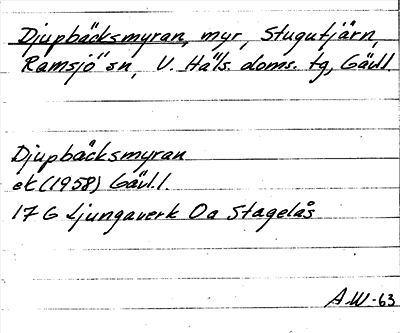 Djupbäcksmyran, myr, Stugutjärn,
Ramsjö sn, V. Häls. doms. tg, Gävl.
Djupbäcksmyran
ek (1958) Gävl. l.
17 G Ljungaverk Oa Stagelås
A.W-63